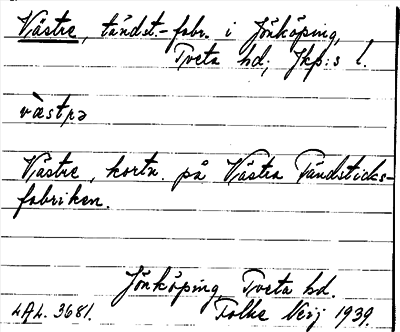 Västre, tändst.-fabr. i Jönköping,
Tveta hd; Jkp:s l.
västrə
Västre, kortn. på Västra Tändsticks-
fabriken.
Jönköping, Tveta hd.
LAL. 3681. Folke Verj 1939.